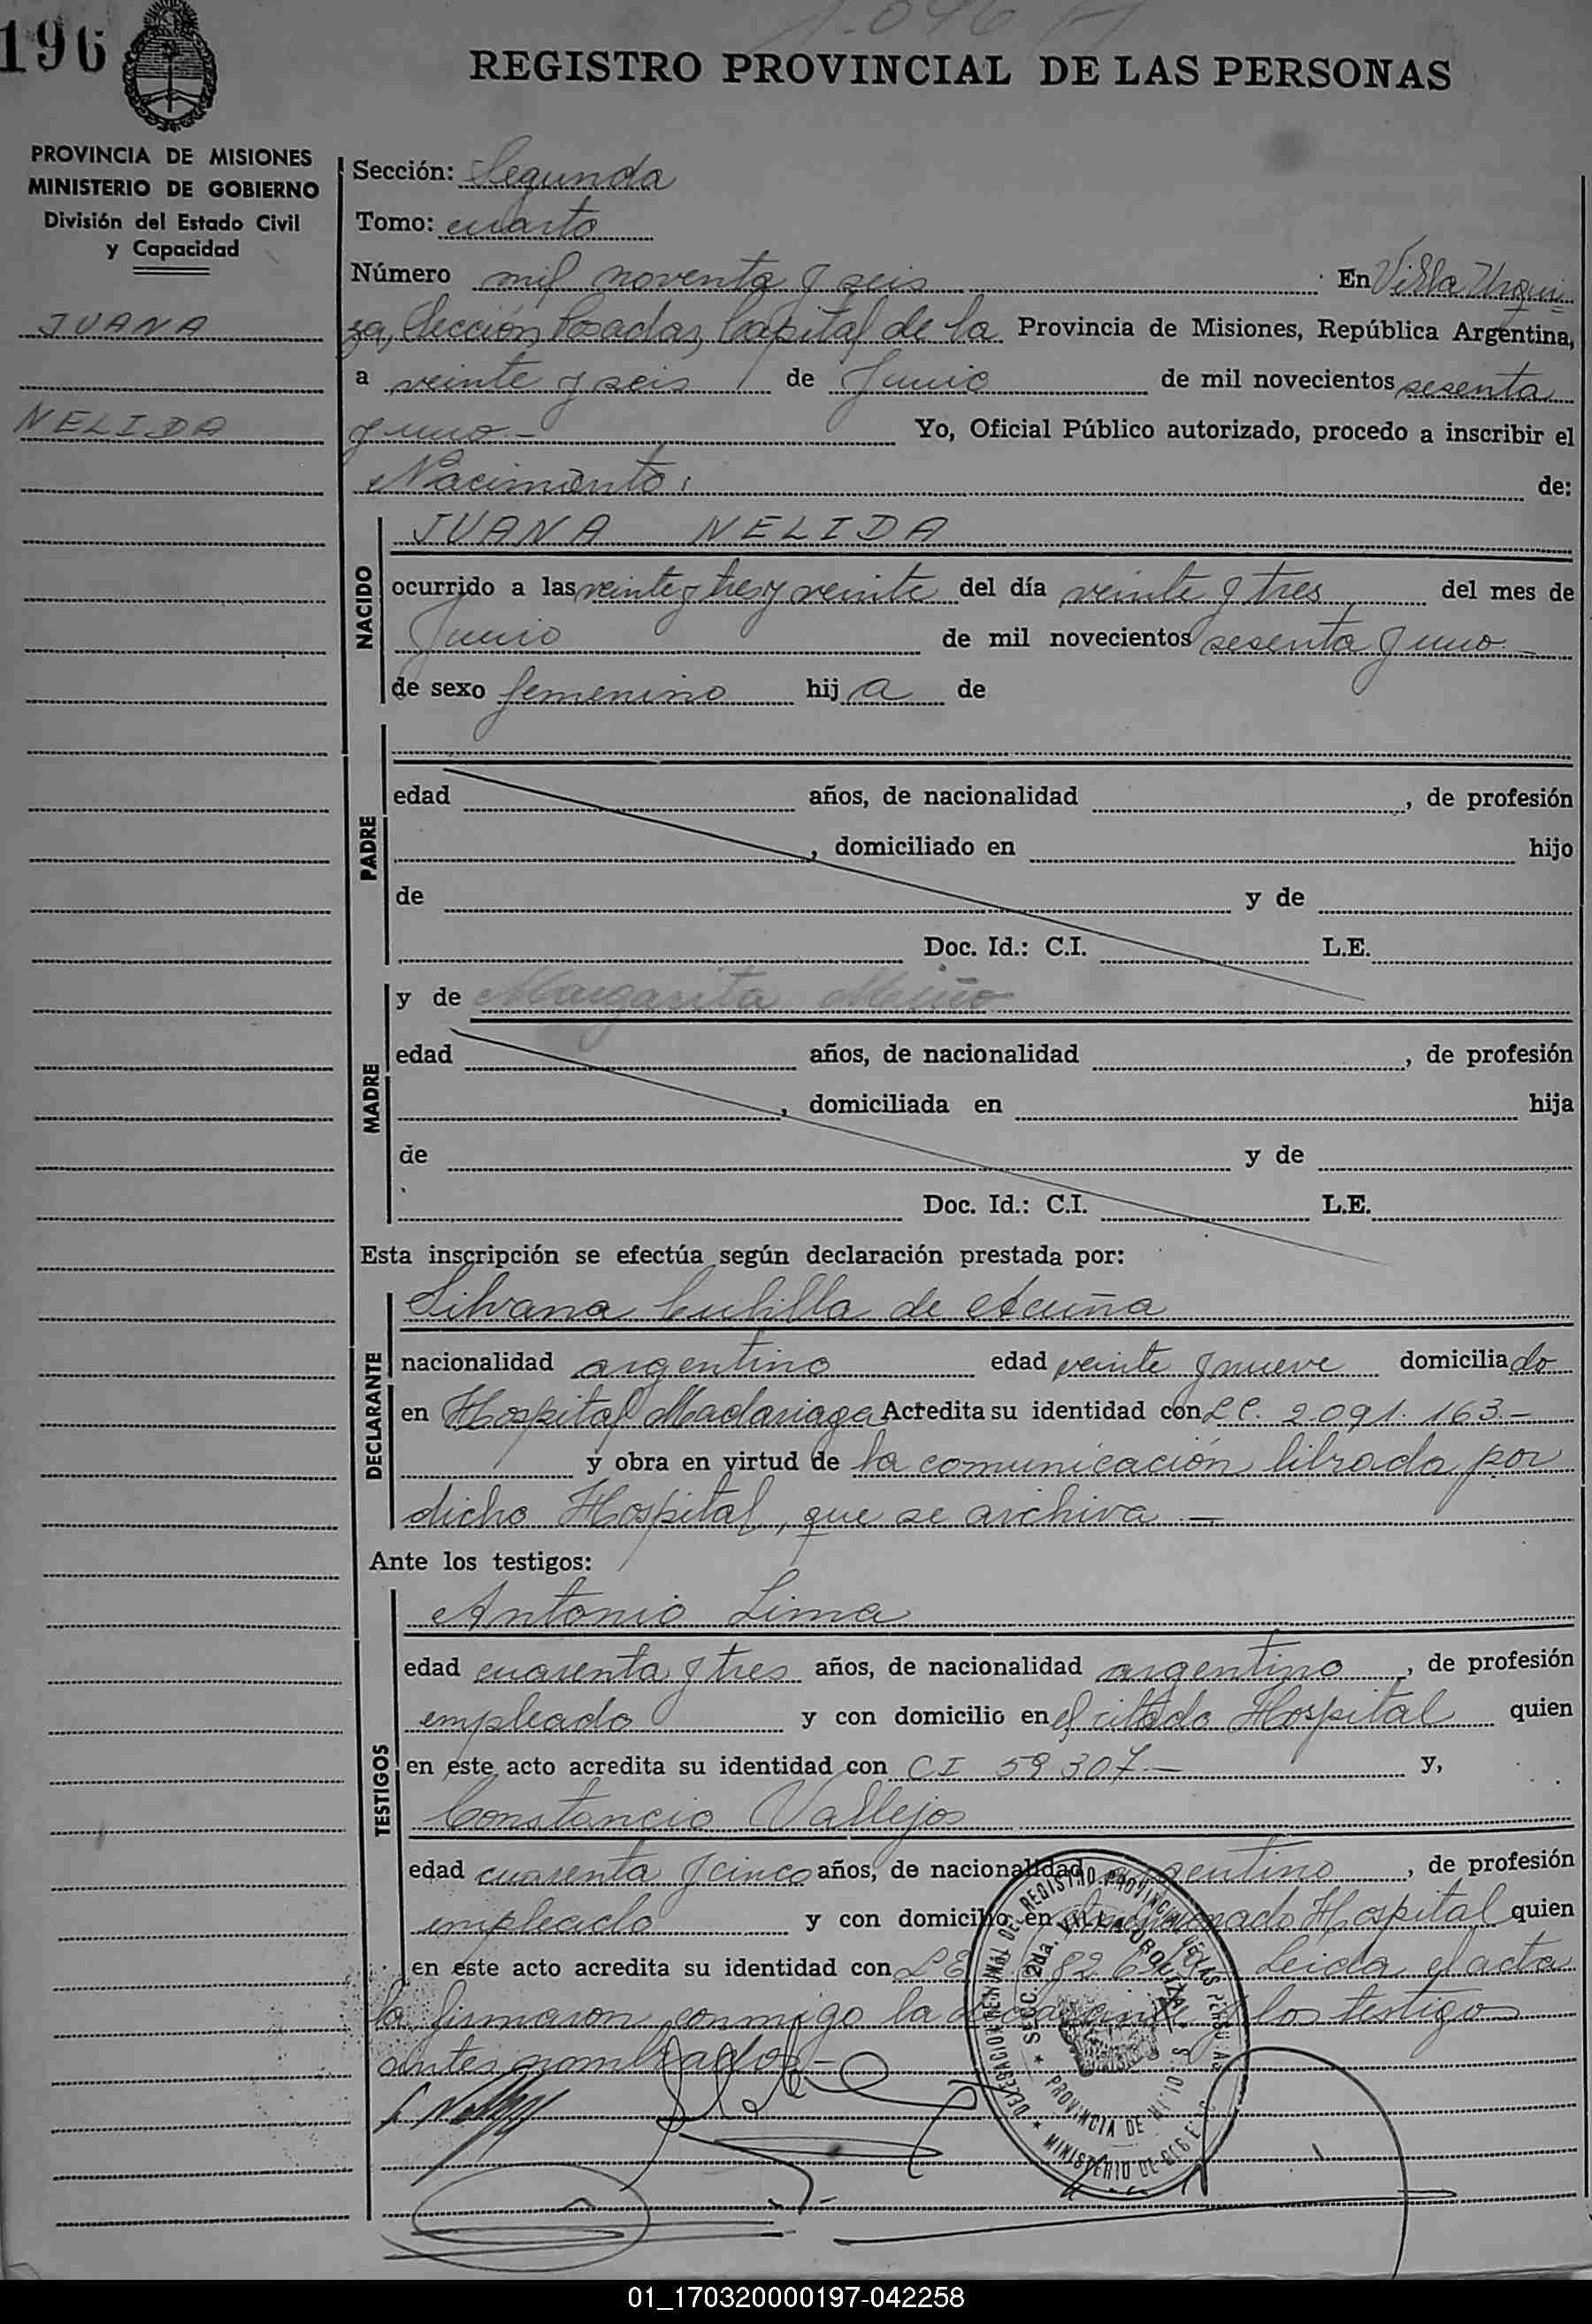 196
REGISTRO PROVINCIAL DE LAS PERSONAS
PROVINCIA DE MISIONES
MINISTERIO DE GOBIERNO
División del Estado Civil
y Capacidad
JUANA
NELIDA
Sección: Segunda
Tomo: cuarto
Número mil noventa y seis En Villa Urqui=
za, Sección, Posadas, Capital de la Provincia de Misiones, República Argentina,
a veinte y seis de Junio de mil novecientos sesenta
y uno.- Yo, Oficial Público autorizado, procedo a inscribir el
Nacimiento: de:
NACIDO
JUANA NELIDA
ocurrido a las veinte y tres y veinte del día veinte y tres del mes de
Junio de mil novecientos sesenta y uno.-
de sexo femenino hij a de
PADRE
edad años, de nacionalidad , de profesión
, domiciliado en hijo
de y de
Doc. Id.: C.I. L.E.
MADRE
y de Margarita Miño
edad años, de nacionalidad , de profesión
, domiciliada en hija
de y de
Doc. Id.: C.I. L.E.
Esta inscripción se efectúa según declaración prestada por:
DECLARANTE
Silvana Cubilla de Acuña
nacionalidad argentino edad veinte y nueve domiciliado
en Hospital Madariaga Acredita su identidad con L.C. 2.091.163.-
y obra en virtud de la comunicación librada por
dicho Hospital, que se archiva.-
Ante los testigos:
TESTIGOS
Antonio Lima
edad cuarenta y tres años, de nacionalidad argentino, de profesión
empleado y con domicilio en el citado Hospital quien
en este acto acredita su identidad con CI 59.307.- y,
Constancio Vallejos
edad cuarenta y cinco años, de nacionalidad argentino, de profesión
empleado y con domicilio en Hospital quien
en este acto acredita su identidad con L.E. Leida el acta
la firmaron conmigo la declarante y los testigos
antes nombrados.-
DELEGACION REGIONAL DEL REGISTRO PROVINCIAL DE LAS PERSONAS
SECC. 2da. VILLA URQUIZA
PROVINCIA DE MISIONES
MINISTERIO DE GOBIERNO
01_170320000197-042258